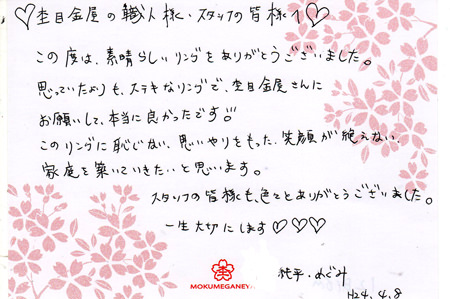 ♡杢目金屋の職人様・スタッフの皆様へ♡
この度は、素晴らしいリングをありがとうございました。
思っていたよりも、ステキなリングで、杢目金屋さんに
お願いして、本当に良かったです!!
このリングに恥じない、思いやりをもった、笑顔が絶えない、
家庭を築いていきたいと思います。
スタッフの皆様も、色々とありがとうございました。
一生大切にします♡♡♡
純平・めぐみ
H24.4.8
MOKUMEGANEYA